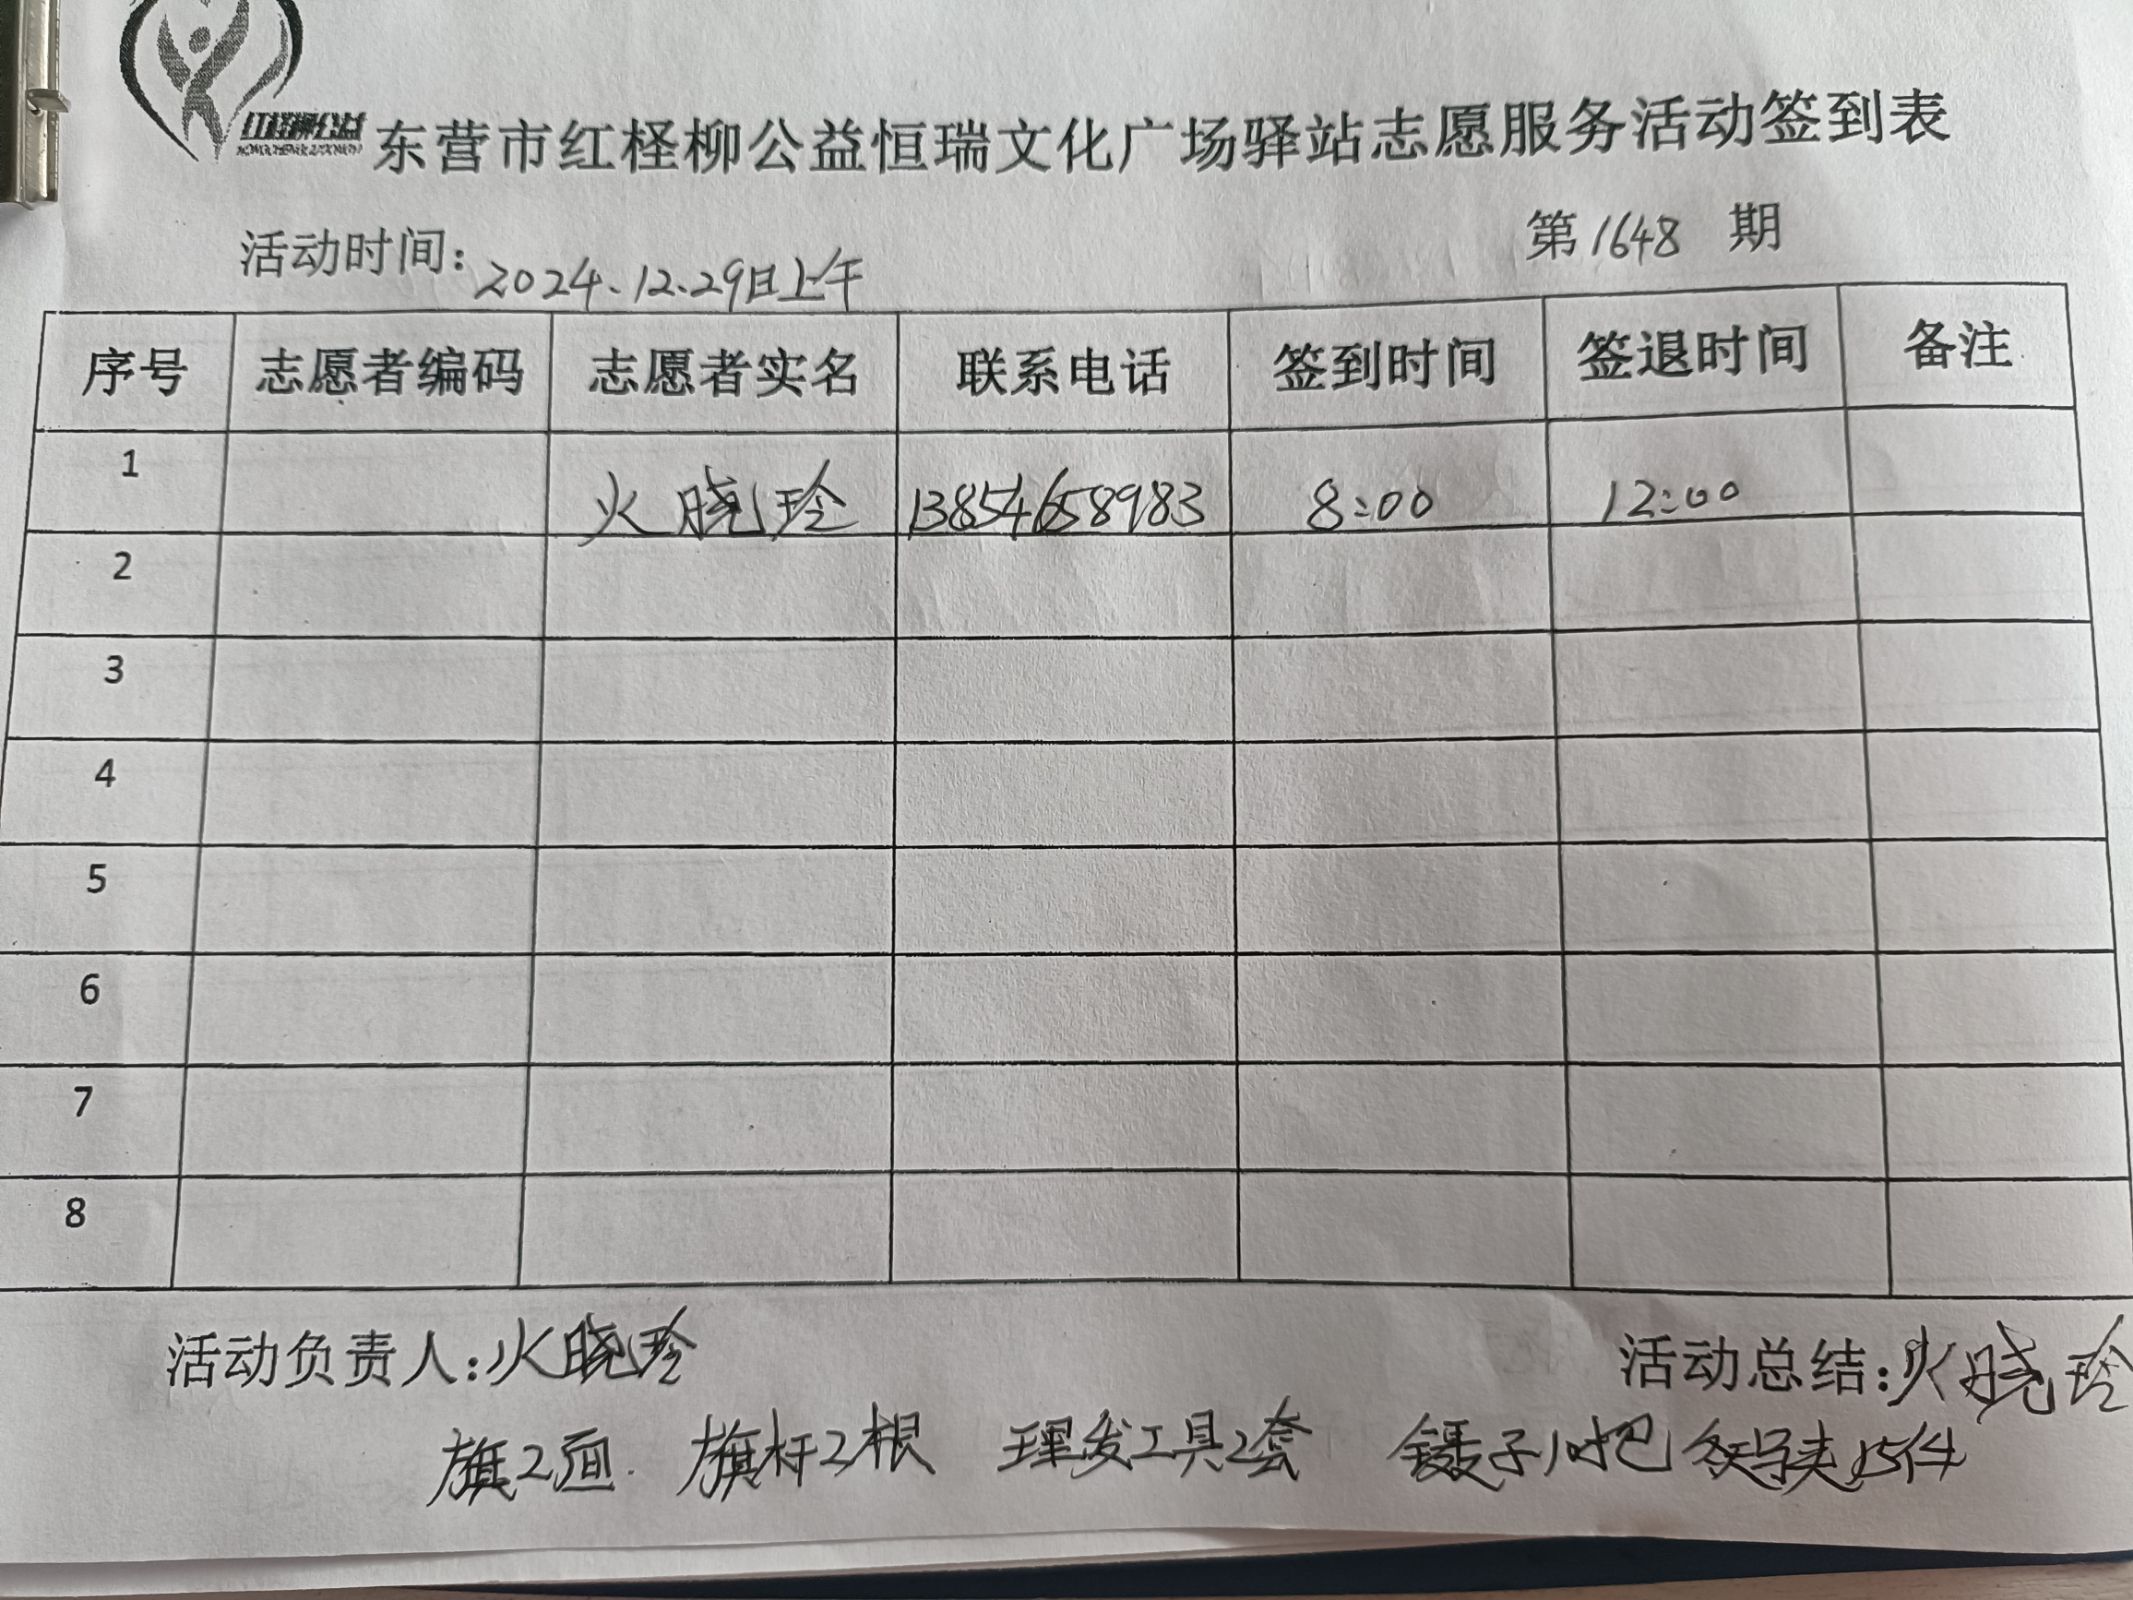 红柽柳公益
东营市红柽柳公益恒瑞文化广场驿站志愿服务活动签到表
活动时间: 2024.12.29日上午 第1648期
序号 志愿者编码 志愿者实名 联系电话 签到时间 签退时间 备注
1 火晓玲 13854658983 8:00 12:00
2
3
4
5
6
7
8
活动负责人:火晓玲 活动总结:火晓玲
旗2面. 旗杆2根 理发工具2套 镊子10把 15件